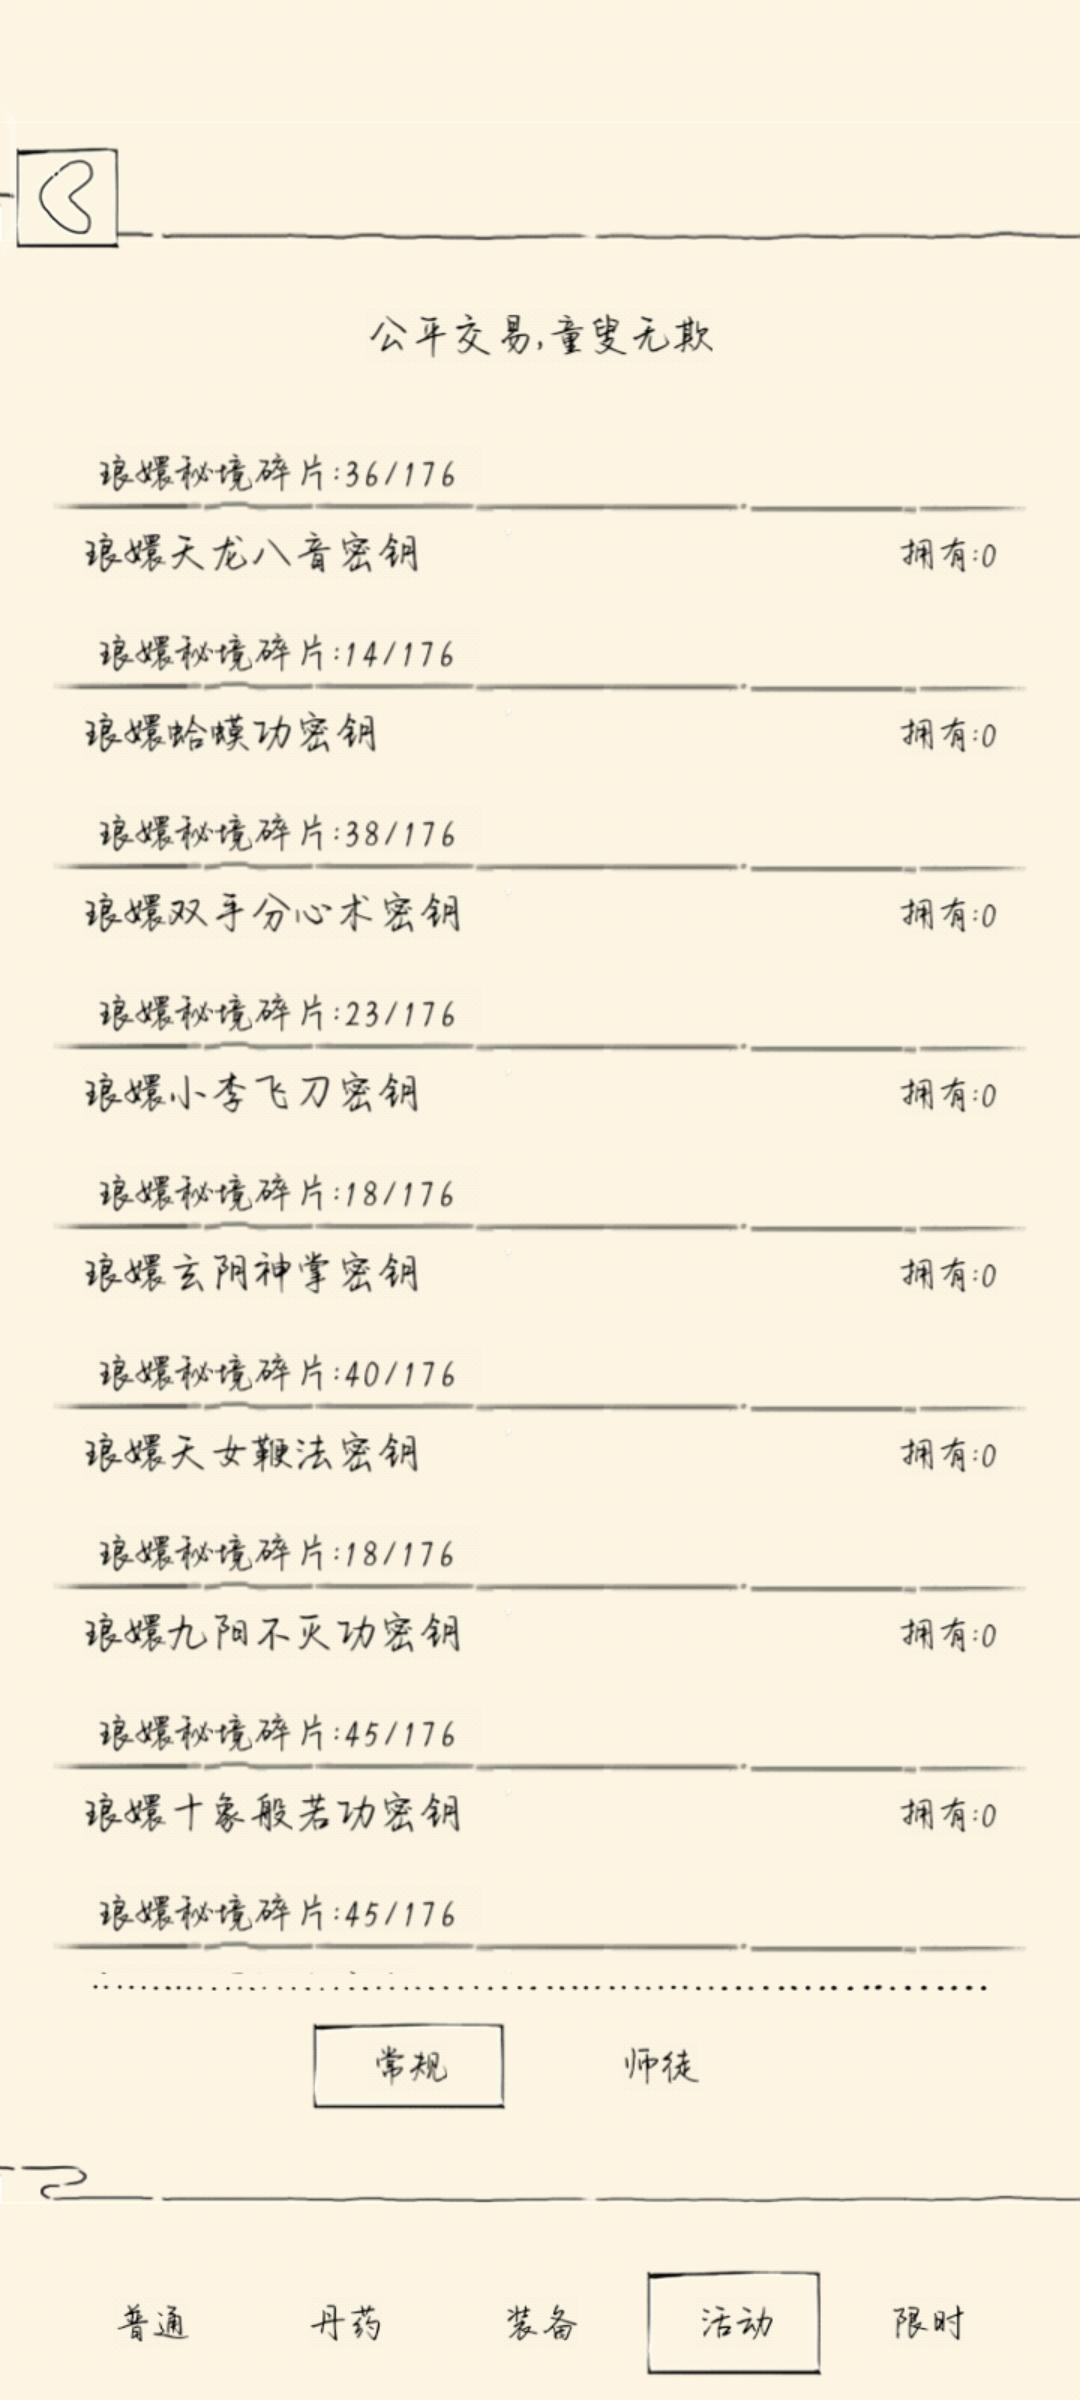 公平交易,童叟无欺
琅嬛秘境碎片:36/176
琅嬛天龙八音密钥 拥有:0
琅嬛秘境碎片:14/176
琅嬛蛤蟆功密钥 拥有:0
琅嬛秘境碎片:38/176
琅嬛双手分心术密钥 拥有:0
琅嬛秘境碎片:23/176
琅嬛小李飞刀密钥 拥有:0
琅嬛秘境碎片:18/176
琅嬛玄阴神掌密钥 拥有:0
琅嬛秘境碎片:40/176
琅嬛天女鞭法密钥 拥有:0
琅嬛秘境碎片:18/176
琅嬛九阳不灭功密钥 拥有:0
琅嬛秘境碎片:45/176
琅嬛十象般若功密钥 拥有:0
琅嬛秘境碎片:45/176
常规 师徒
普通 丹药 装备 活动 限时